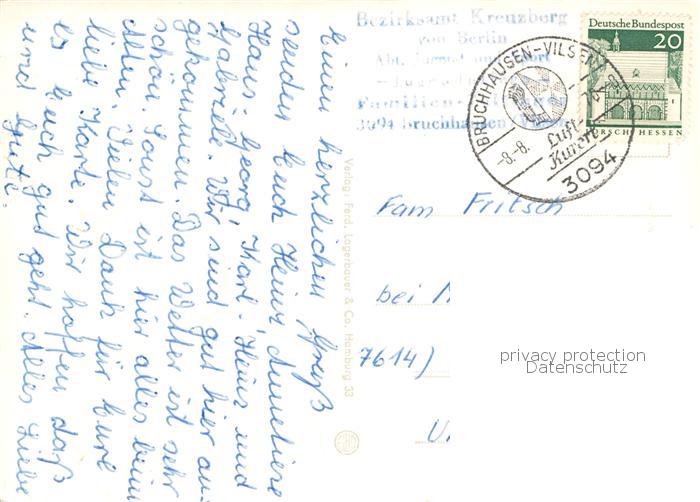 Einen herzlichen Gruß
senden Euch Heinz Anneliese
Hans-Georg, Karl-Heinz und
Gabriele. Wir sind gut hier an-
gekommen. Das Wetter ist sehr
schön. Sonst ist hier alles beim
Alten. Vielen Dank für Eure
liebe Karte. Wir hoffen daß
es Euch gut geht. Alles Liebe
und Gute.
Verlag: Ferd. Lagerbauer & Co. Hamburg 33
Bezirksamt Kreuzberg
von Berlin
Abt. Jugend und Sport
Familien-
3094 Bruchhausen-Vilsen
BRUCHHAUSEN-VILSEN
-8.-8.
Luft-
Kurort
3094
Deutsche Bundespost
20
LORSCH/HESSEN
Fam Fritsch
bei
7614)
privacy protection
Datenschutz